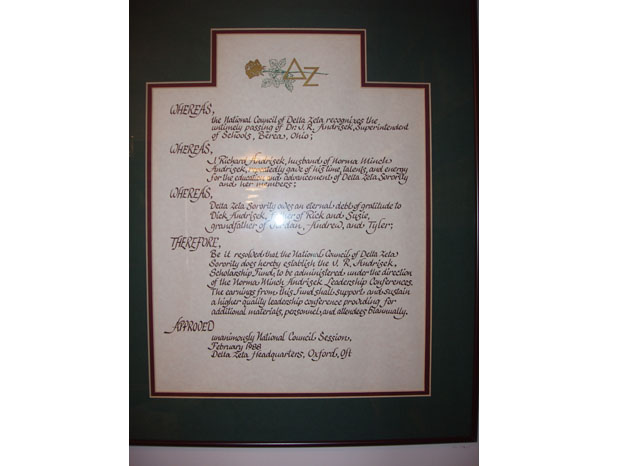 ΔΖ
WHEREAS,
the National Council of Delta Zeta recognizes the
untimely passing of Dr. J. R. Andrisek, Superintendent
of Schools, Berea, Ohio;
WHEREAS,
J. Richard Andrisek, husband of Norma Minch
Andrisek, repeatedly gave of his time, talents, and energy
for the education and advancement of Delta Zeta Sorority
and her members;
WHEREAS,
Delta Zeta Sorority owes an eternal debt of gratitude to
Dick Andrisek, father of Rick and Suzie,
grandfather of Jordan, Andrew, and Tyler;
THEREFORE,
Be it resolved that the National Council of Delta Zeta
Sorority does hereby establish the J. R. Andrisek
Scholarship Fund, to be administered under the direction
of the Norma Minch Andrisek Leadership Conferences.
The earnings from this Fund shall support and sustain
a higher quality leadership conference providing for
additional materials, personnel, and attendees biannually.
APPROVED
unanimously National Council Session,
February 1988
Delta Zeta Headquarters, Oxford, OH